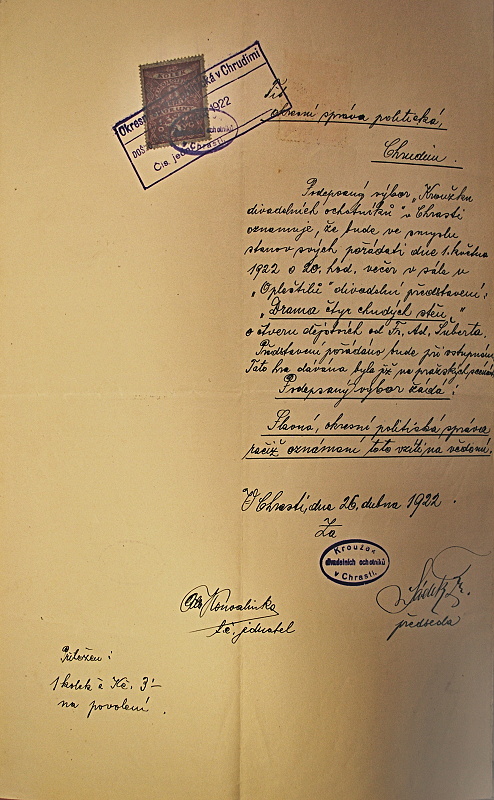 KOLEK
Okresní ká v Chrudimi
1922
Čís. jed
ochotníků
v Chrasti.
Tit.
okresní správa politická,
Chrudim.
Podepsaný výbor „Kroužku
divadelních ochotníků" v Chrasti
oznamuje, že bude ve smyslu
stanov svých pořádati dne 1. května
1922 o 20. hod. večer v sále u
„Opleštilů" divadelní představení:
„Drama čtyř chudých stěn"
o čtveru dějstvích od Fr. Ad. Šuberta.
Představení pořádáno bude při vstupném
Tato hra dávána byla již na pražských scénách
Podepsaný výbor žádá:
Slavná, okresní politická správa
račiž oznámení toto vzíti na vědomí.
V Chrasti, dne 26. dubna 1922.
Za
Kroužek
divadelních ochotníků
v Chrasti.
Konvalinka
t.č. jednatel
předseda
Přiložen:
1 kolek à Kč. 3'-
na povolení.